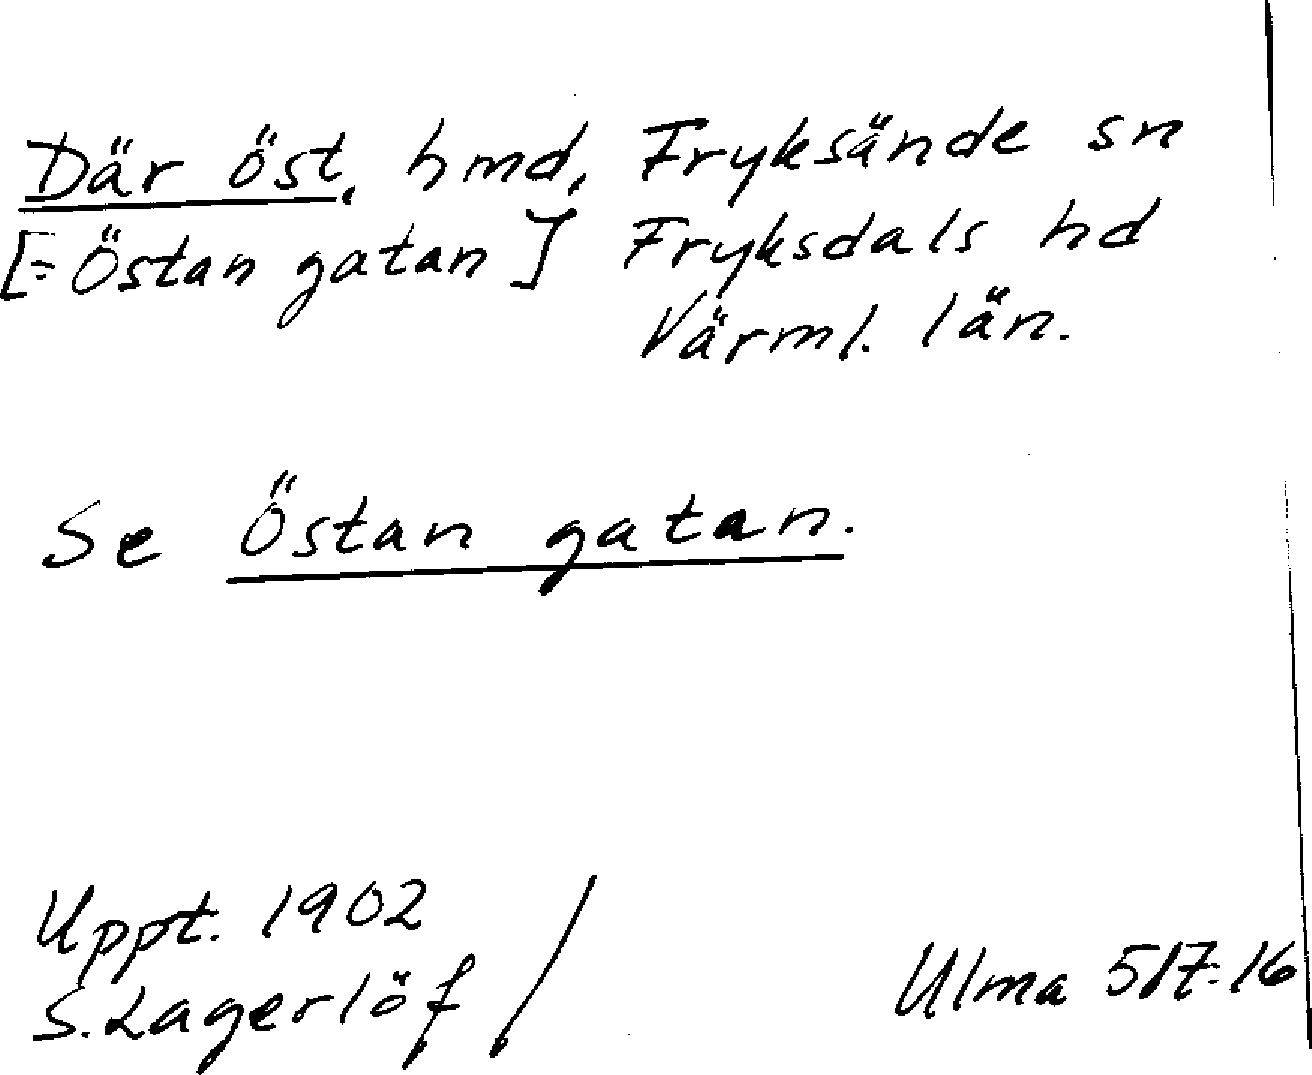 Där öst, hmd, Fryksände sn
[= Östan gatan] Fryksdals hd
Värml. län.
Se Östan gatan.
Uppt. 1902
S. Lagerlöf /
Ulma 517:16